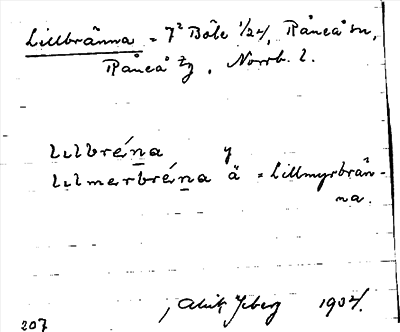 Lillbränna = 7² Böle 1/24, Råneå sn,
Råneå tg, Norrb. l.
lilbréna y
lilmerbréna ä = Lillmyrbrän-
na.
1904.
207